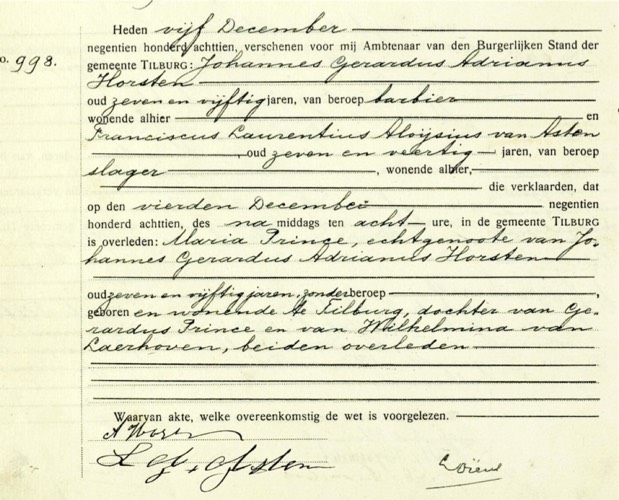 Heden vijf December
negentien honderd achttien, verschenen voor mij Ambtenaar van den Burgerlijken Stand der
o. 998.
gemeente TILBURG: Johannes Gerardus Adrianus
Horsten
oud zeven en vijftig jaren, van beroep barbier
wonende alhier en
Franciscus Laurentius Aloijsius van Asten
, oud zeven en veertig jaren, van beroep
slager , wonende alhier,
die verklaarden, dat
op den vierden December negentien
honderd achttien, des na middags ten acht ure, in de gemeente TILBURG
is overleden: Maria Prince, echtgenoote van Jo-
hannes Gerardus Adrianus Horsten
oud zeven en vijftig jaren, zonder beroep ,
geboren en wonende te Tilburg, dochter van Ge-
rardus Prince en van Wilhelmina van
Laerhoven, beiden overleden
Waarvan akte, welke overeenkomstig de wet is voorgelezen.